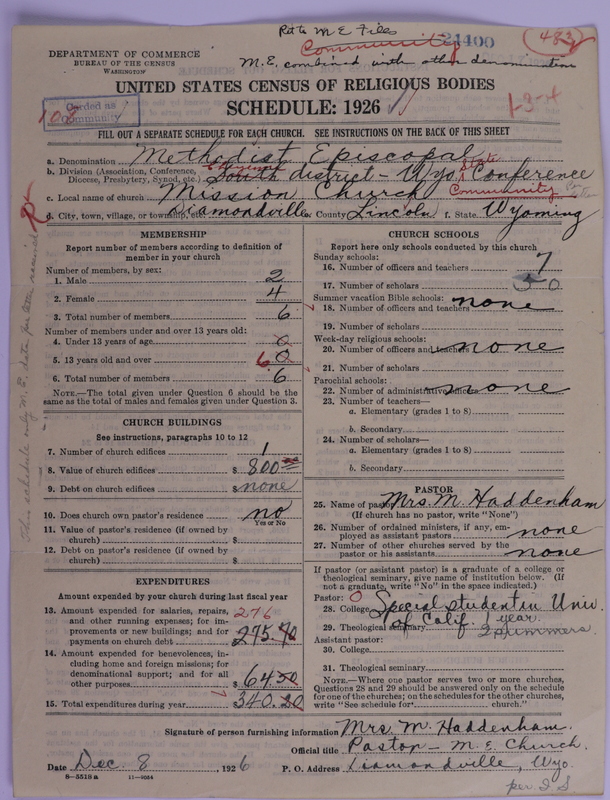 Rets M E Files
Community
24400
483
M.E. combined with other denomination
DEPARTMENT OF COMMERCE
BUREAU OF THE CENSUS
WASHINGTON
UNITED STATES CENSUS OF RELIGIOUS BODIES
SCHEDULE: 1926
1-3-4
Carded as
Community
108
FILL OUT A SEPARATE SCHEDULE FOR EACH CHURCH. SEE INSTRUCTIONS ON THE BACK OF THIS SHEET
a. Denomination Methodist Episcopal
b. Division (Association, Conference, Diocese, Presbytery, Synod, etc.) South district - Wyo. State Conference
c. Local name of church Mission Church Community
d. City, town, village, or township, etc. Diamondville e. County Lincoln f. State Wyoming
MEMBERSHIP
Report number of members according to definition of
member in your church
Number of members, by sex:
1. Male 2
2. Female 4
3. Total number of members 6
Number of members under and over 13 years old:
4. Under 13 years of age 0
5. 13 years old and over 6 0
6. Total number of members 6
NOTE.—The total given under Question 6 should be the
same as the total of males and females given under Question 3.
CHURCH BUILDINGS
See instructions, paragraphs 10 to 12
7. Number of church edifices 1
8. Value of church edifices $ 800
9. Debt on church edifices $ none
10. Does church own pastor's residence no
Yes or No
11. Value of pastor's residence (if owned by
church) $
12. Debt on pastor's residence (if owned by
church) $
EXPENDITURES
Amount expended by your church during last fiscal year
13. Amount expended for salaries, repairs, 276
and other running expenses; for im-
provements or new building; and for
payments on church debt $ 275.70
14. Amount expended for benevolences, in-
cluding home and foreign missions; for
denominational support; and for all
other purposes $ 64.50
15. Total expenditures during year $ 340.20
CHURCH SCHOOLS
Report here only schools conducted by this church
Sunday schools:
16. Number of officers and teachers 7
17. Number of scholars 50
Summer vacation Bible schools:
18. Number of officers and teachers none
19. Number of scholars
Week-day religious schools:
20. Number of officers and teachers none
21. Number of scholars
Parochial schools:
22. Number of administrative officers none
23. Number of teachers—
a. Elementary (grades 1 to 8)
b. Secondary
24. Number of scholars—
a. Elementary (grades 1 to 8)
b. Secondary
PASTOR
25. Name of pastor Mrs. M. Haddenham
(If church has no pastor, write "None")
26. Number of ordained ministers, if any, em-
ployed as assistant pastors none
27. Number of other churches served by the
pastor or his assistants none
If pastor (or assistant pastor) is a graduate of a college or
theological seminary, give name of institution below. (If
not a graduate, write "No" in the space indicated.)
Pastor: 0
28. College Special student in Univ.
of Calif. year.
29. Theological seminary 2 summers.
Assistant pastor:
30. College
31. Theological seminary
NOTE.—Where one pastor serves two or more churches,
Questions 28 and 29 should be answered only on the schedule
for one of the churches; on the schedules for the other churches,
write "See schedule for church."
Signature of person furnishing information Mrs. M. Haddenham.
Official title Pastor - M. E. Church.
Date Dec. 8, 1926 P. O. Address Diamondville, Wyo.
8-5518a 11-9084
per I S
This schedule only M. E. data for letter received